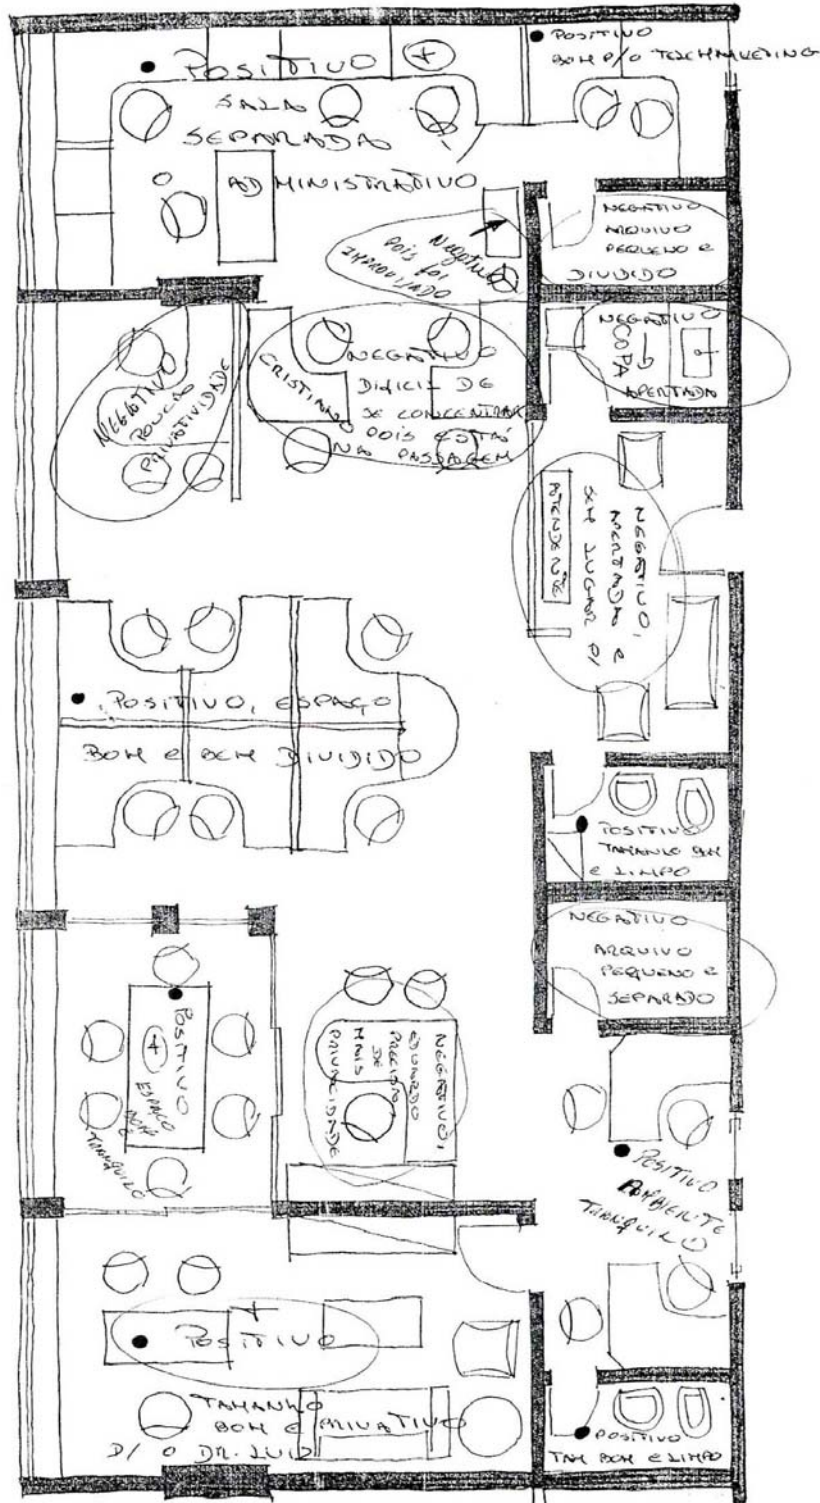 POSITIVO
SALA
SEPARADA
ADMINISTRATIVO
+
POSITIVO
BOM P/O TELEMARKETING
NEGATIVO
POIS FOI
IMPROVISADO
NEGATIVO
ARQUIVO
PEQUENO E
DIVIDIDO
NEGATIVO
COPA
APERTADA
NEGATIVO
POUCA
PRIVATIVIDADE
CRISTIANO
NEGATIVO
DIFICIL DE
SE CONCENTRAR
POIS ESTÁ
NA PASSAGEM
NEGATIVO,
APERTADA E
SEM LUGAR P/
ATENDENTE
POSITIVO, ESPAÇO
BOM E BEM DIVIDIDO
POSITIVO
TAMANHO BOM
E LIMPO
NEGATIVO
ARQUIVO
PEQUENO E
SEPARADO
POSITIVO
+
ESPAÇO
BOM
TRANQUILO
NEGATIVO,
EDUARDO
PRECISA
DE
MAIS
PRIVACIDADE
POSITIVO
AMBIENTE
TRANQUILO
+
POSITIVO
TAMANHO
BOM E PRIVATIVO
P/ O DR. LUIZ
POSITIVO
TAM BOM E LIMPO